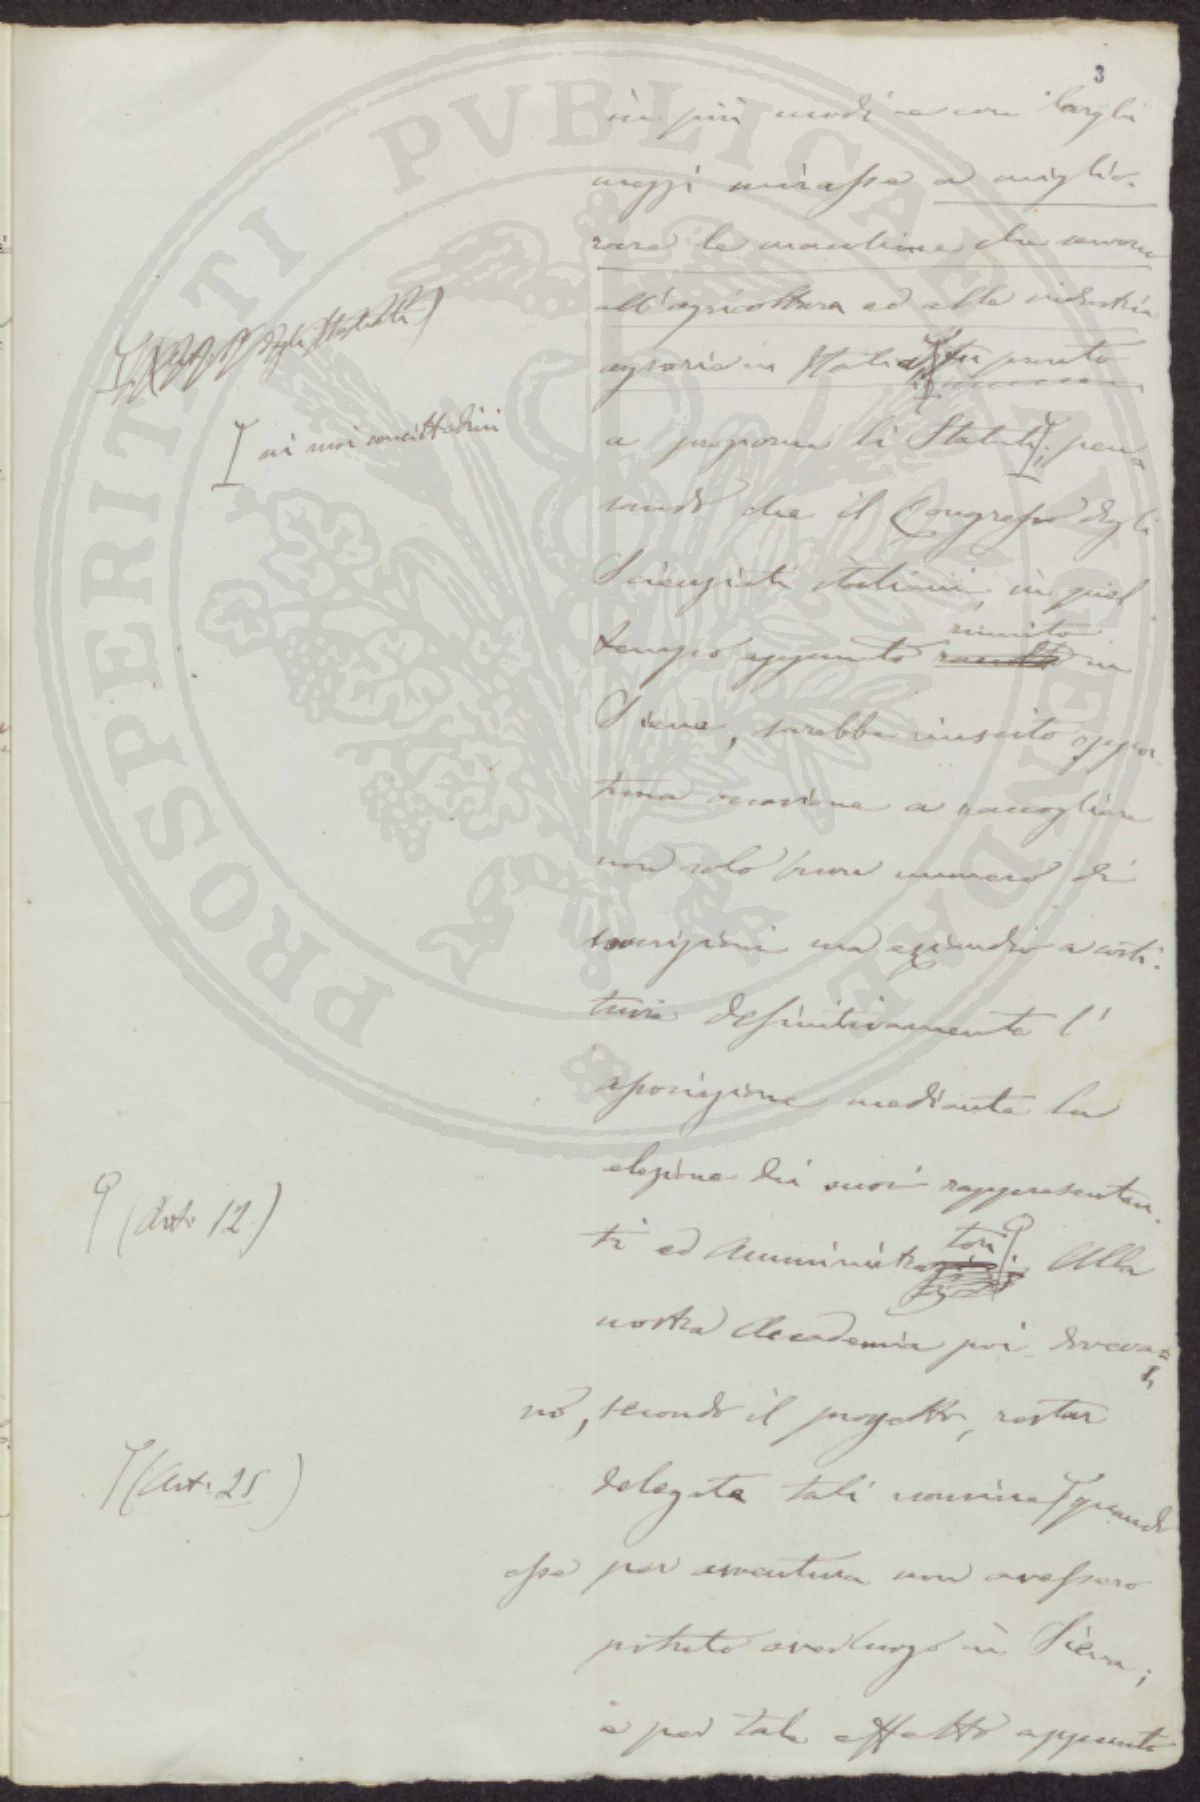 3
in più modi e con larghi
mezzi mirasse a miglio-
rare le macchine che servono
all'agricoltura ed alla industria
agraria in Italia fu pronto
degli Statuti)
a proporne li Statuti; pen-
ai miei concittadini
sando che il Congresso degli
Scienziati italiani, in quel
tempo appunto riunito in
Siena, sarebbe riuscito oppor-
tuna occasione a raccogliere
non solo buon numero di
soscrizioni ma eziandio a costi-
tuire definitivamente l'
associazione mediante la
elezione dei suoi rappresentan-
(Art. 12.)
ti ed Amministratori. Alla
nostra Accademia poi doveva=
no, secondo il progetto, restar
(Art. 25)
delegate tali nomine quando
esse per avventura non avessero
potuto aver luogo in Siena;
e per tale effetto appunto
PROSPERITATI PVBLICAE AVGENDAE